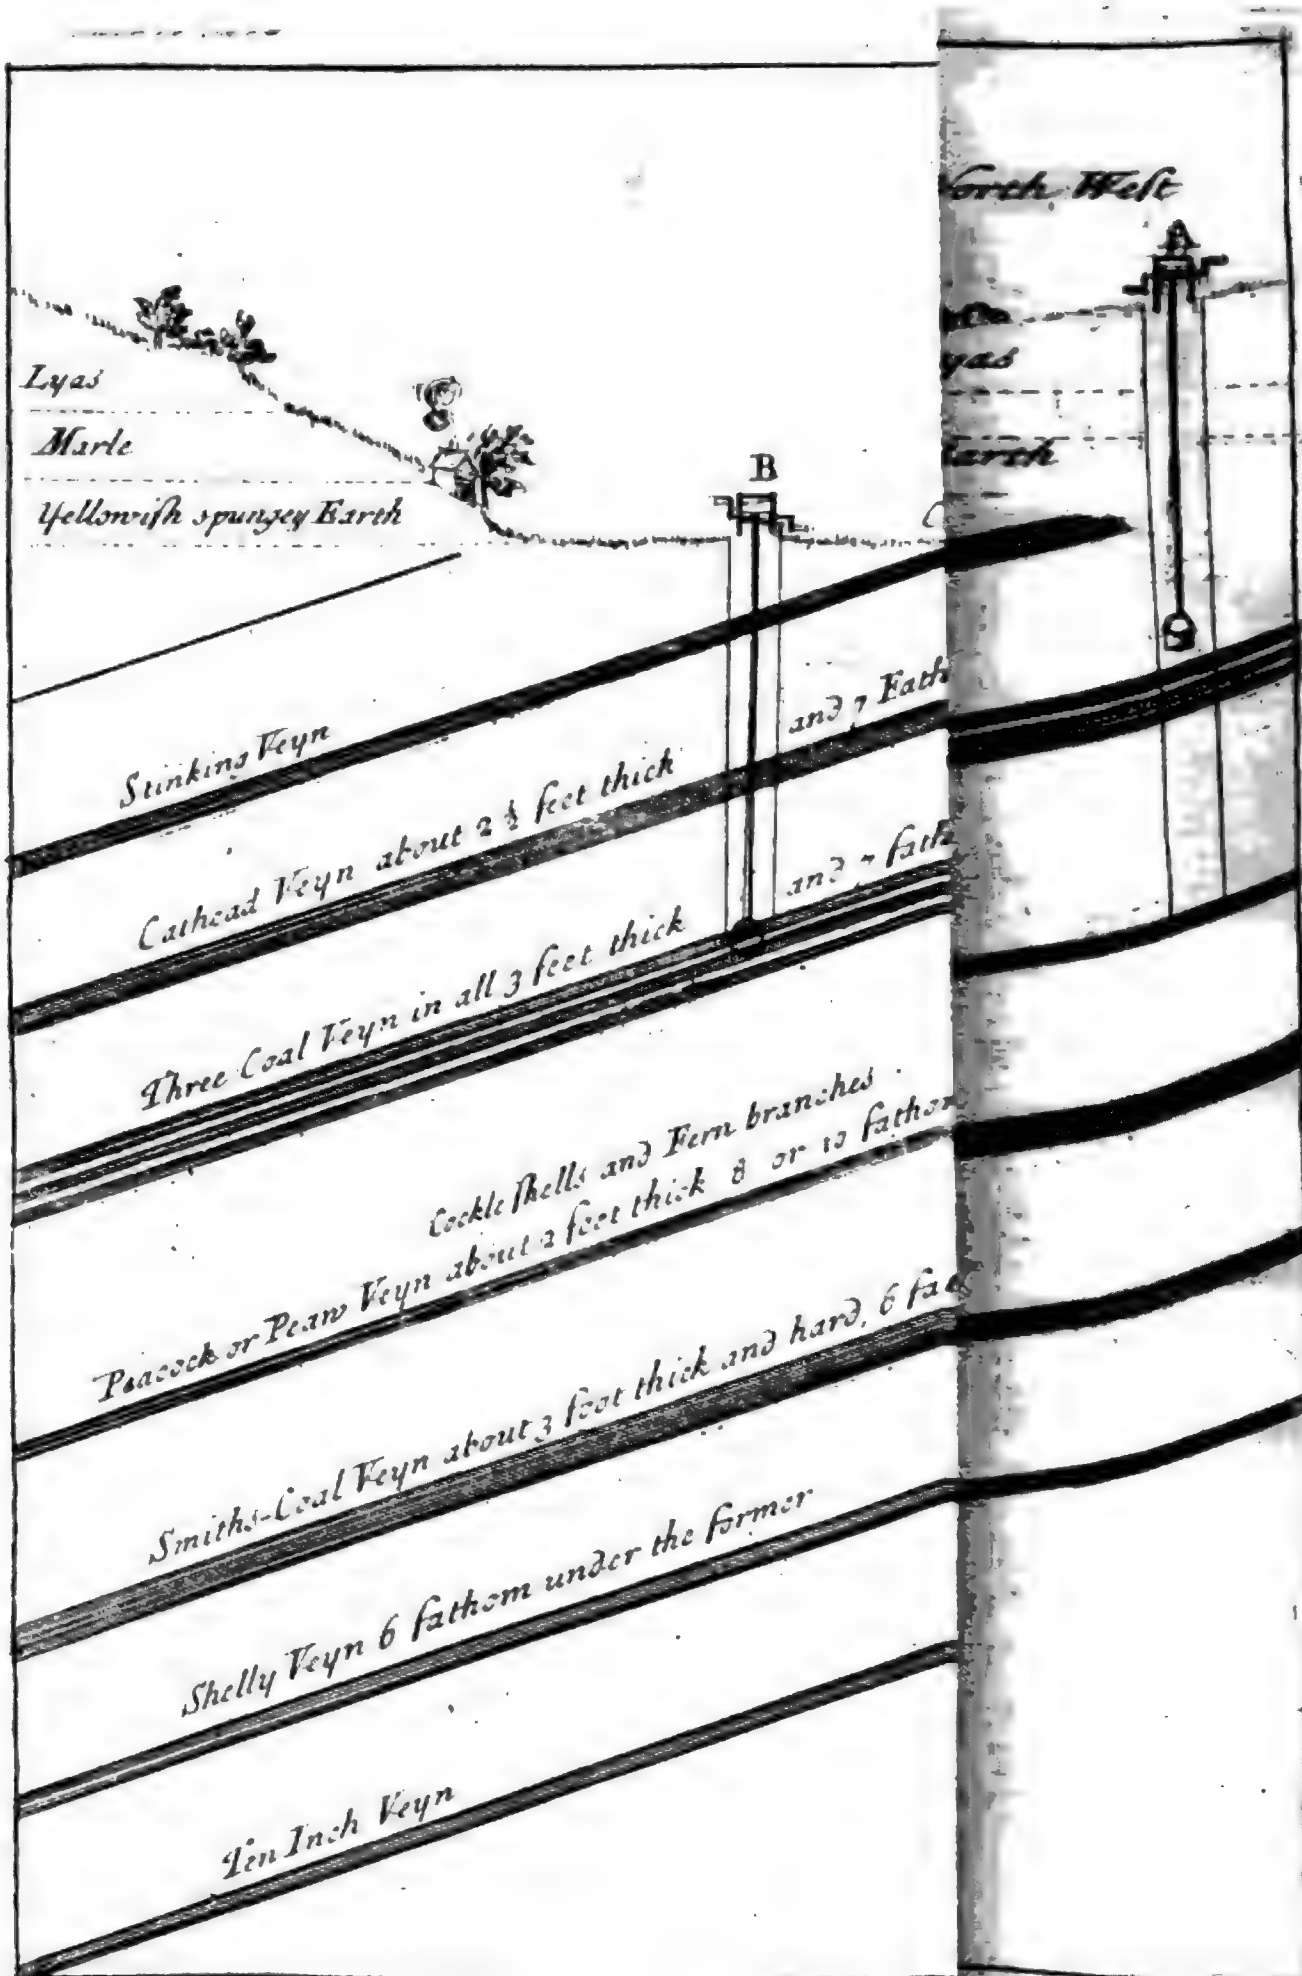 orth Weſt
Lyas
yas
Marle
Earth
Yellowiſh spungey Earth
B
Stinking Veyn
and 7 Fath
Cathead Veyn about 2 ½ feet thick
and 7 fath
Three Coal Veyn in all 3 feet thick
Cockle ſhells and Fern branches
Peacock or Peaw Veyn about 2 foot thick 8 or 10 fathom
Smiths-Coal Veyn about 3 foot thick and hard, 6 fa
Shelly Veyn 6 fathom under the former
Ten Inch Veyn